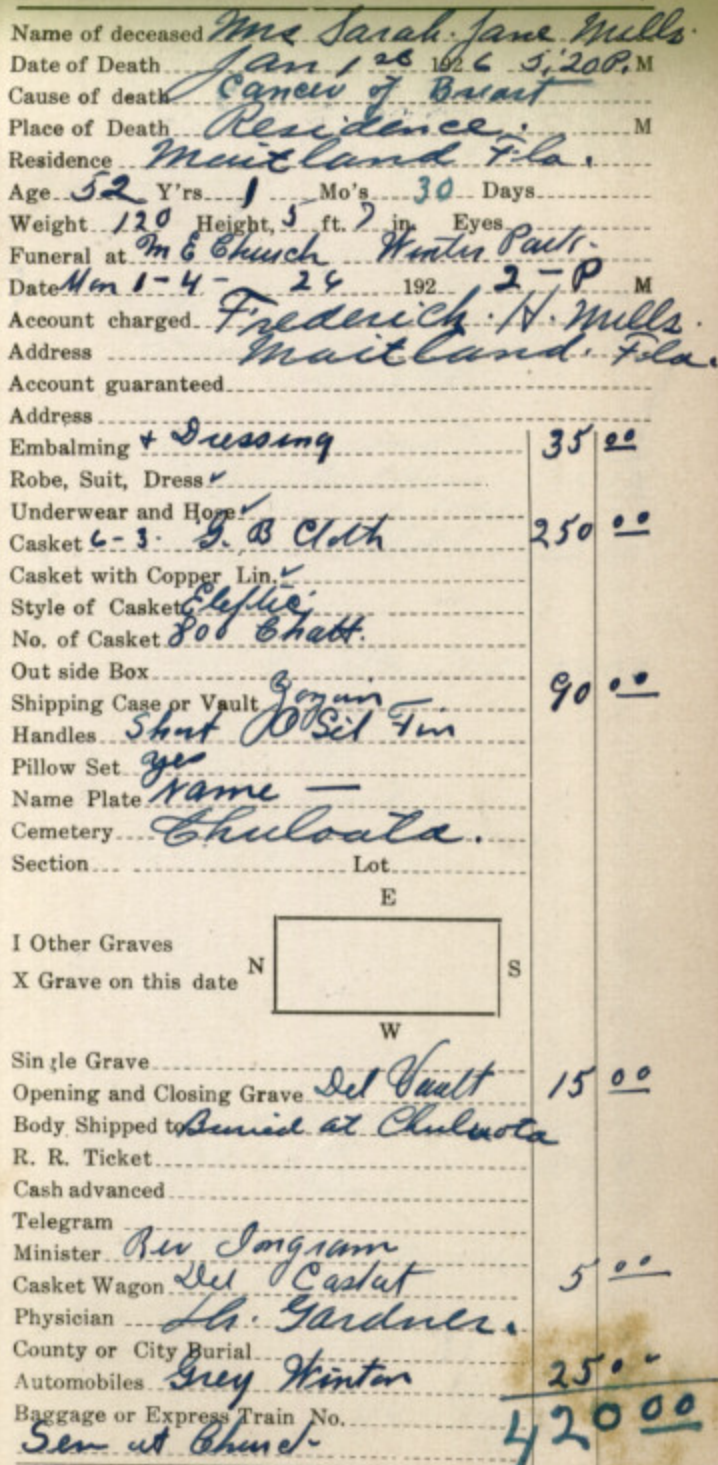 Name of deceased Mrs Sarah Jane Mills
Date of Death Jan 1st 1926 5:20 P. M
Cause of death Cancer of Breast
Place of Death Residence. M
Residence Maitland Fla.
Age 52 Y'rs 1 Mo's 30 Days
Weight 120 Height, 5 ft. 7 in. Eyes
Funeral at M E Church Winter Park
Date Mon 1-4- 26 192 2-P M
Account charged Frederick. H. Mills.
Address Maitland. Fla.
Account guaranteed
Address
Embalming + Dressing 35 00
Robe, Suit, Dress ✓
Underwear and Hose ✓
Casket 6-3. G. B Cloth 250 00
Casket with Copper Lin. ✓
Style of Casket
No. of Casket 800 Chatt.
Out side Box
Shipping Case or Vault 90 00
Handles Short Sil Fin
Pillow Set yes
Name Plate Name —
Cemetery Chuloata.
Section Lot
E
I Other Graves
N S
X Grave on this date
W
Single Grave
Opening and Closing Grave Del Vault 15 00
Body Shipped to Buried at Chuluota
R. R. Ticket
Cash advanced
Telegram
Minister Rev Ingram
Casket Wagon Del Casket 5 00
Physician Gardner.
County or City Burial
Automobiles Grey Winton 25 00
Baggage or Express Train No. 420 00
Ser at Church